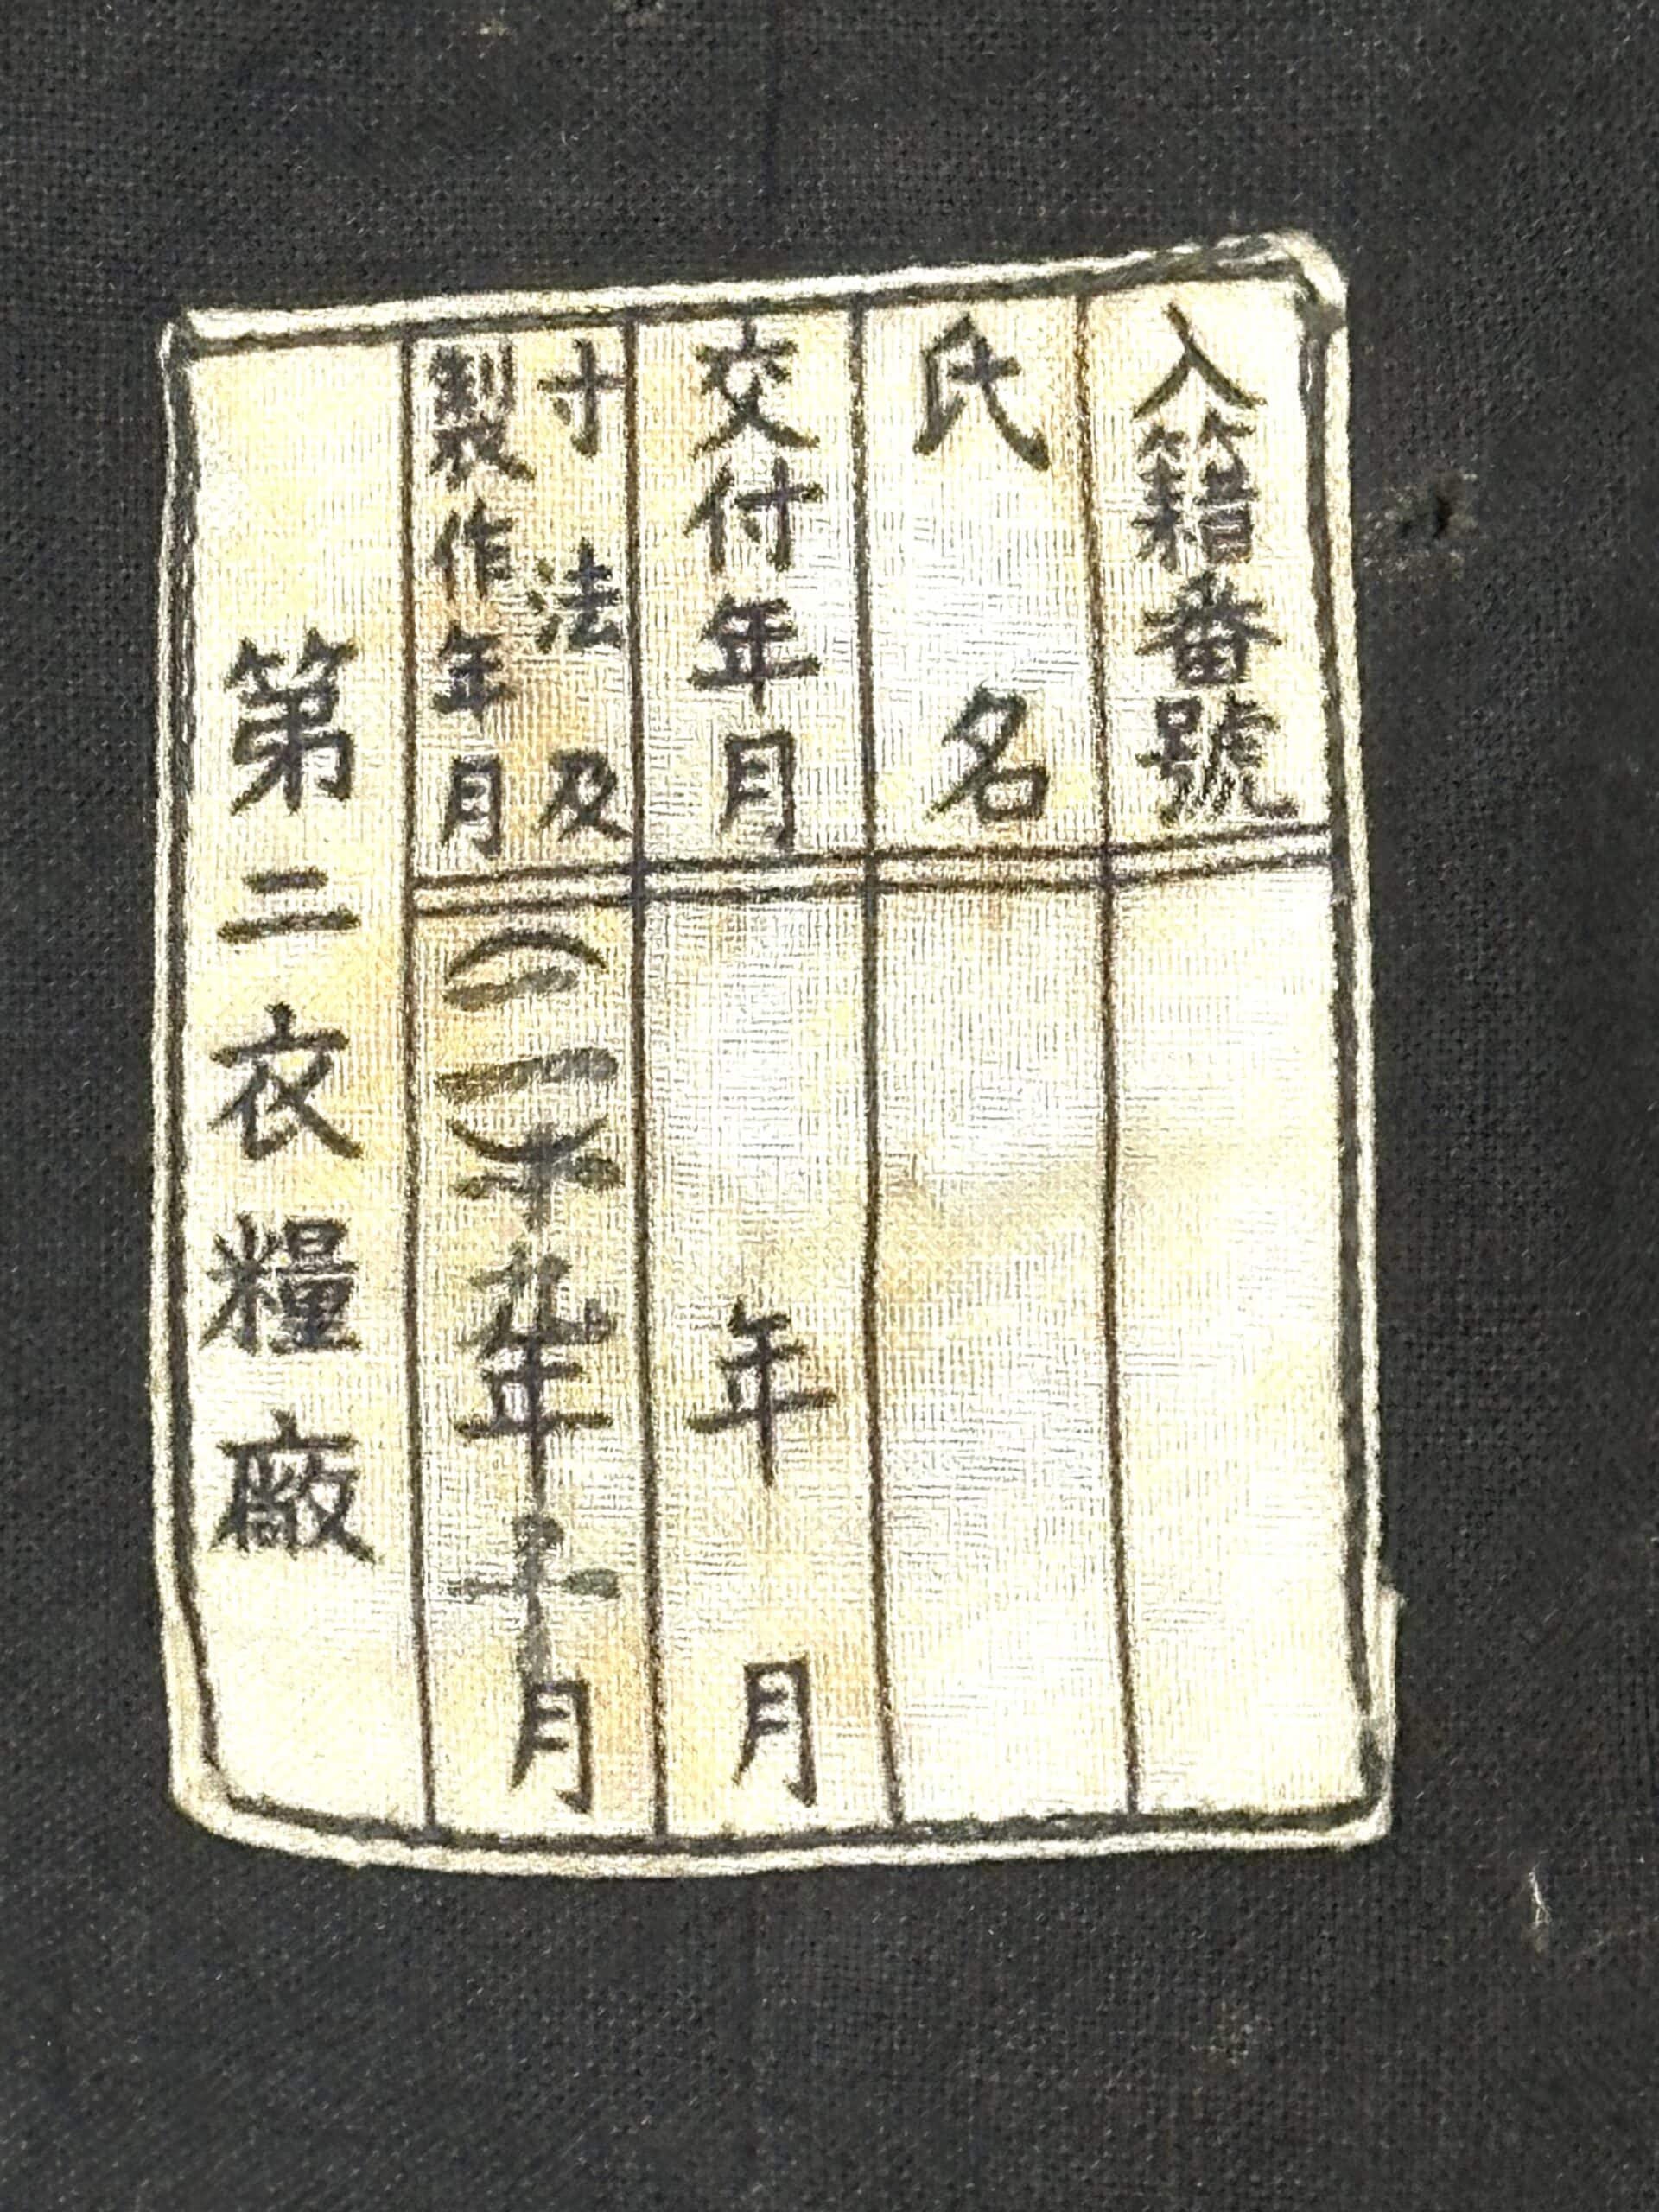 入籍番號
氏名
交付年月
年 月
寸法及
製作年月
(二)十九年十月
第二衣糧廠